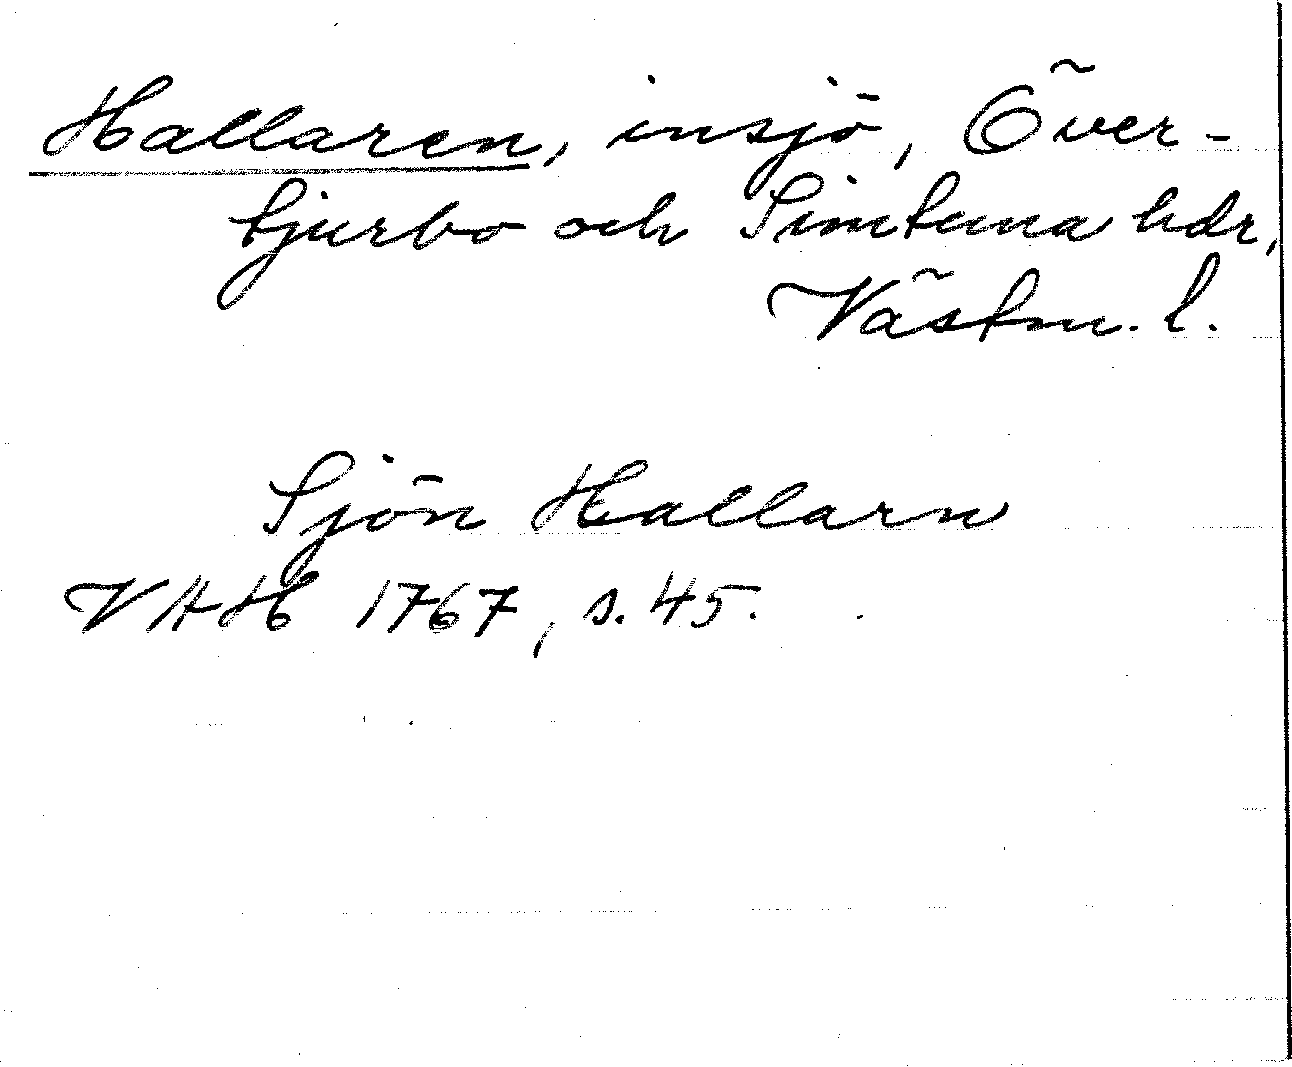 Hallaren, insjö, Över-
tjurbo och Simtuna hdr,
Västm. l.
Sjön Hallarn
VAH 1767, s. 45.